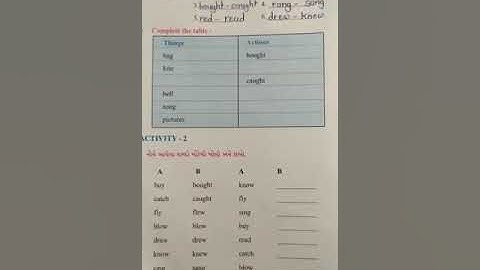 3. bought - caught 4. rang - sang
5. red - read 6. drew - knew
Complete the table :
Things Actions
bag bought
kite
caught
bell
song
pictures
ACTIVITY - 2
નીચે આપેલા શબ્દો બોલો અને લખો.
A B A B
buy bought know
catch caught fly
fly flew sing
blow blew buy
draw drew read
know knew catch
sing sang blow